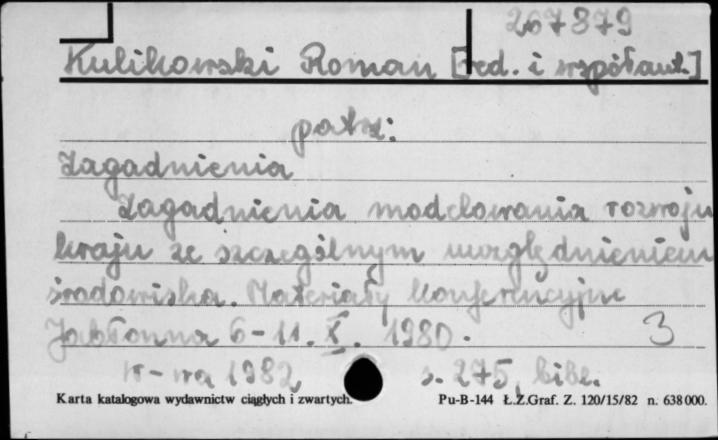 267879
Kulikowski Roman [red. i współaut.]
patrz:
Zagadnienia
Zagadnienia modelowania rozwoju
kraju ze szczególnym uwzględnieniem
środowiska. Materiały konferencyjne
Jabłonna 6-11.X.1980. 3
W-wa 1982 s. 275, bibl.
Karta katalogowa wydawnictw ciągłych i zwartych. Pu-B-144 Ł.Z.Graf. Z. 120/15/82 n. 638000.